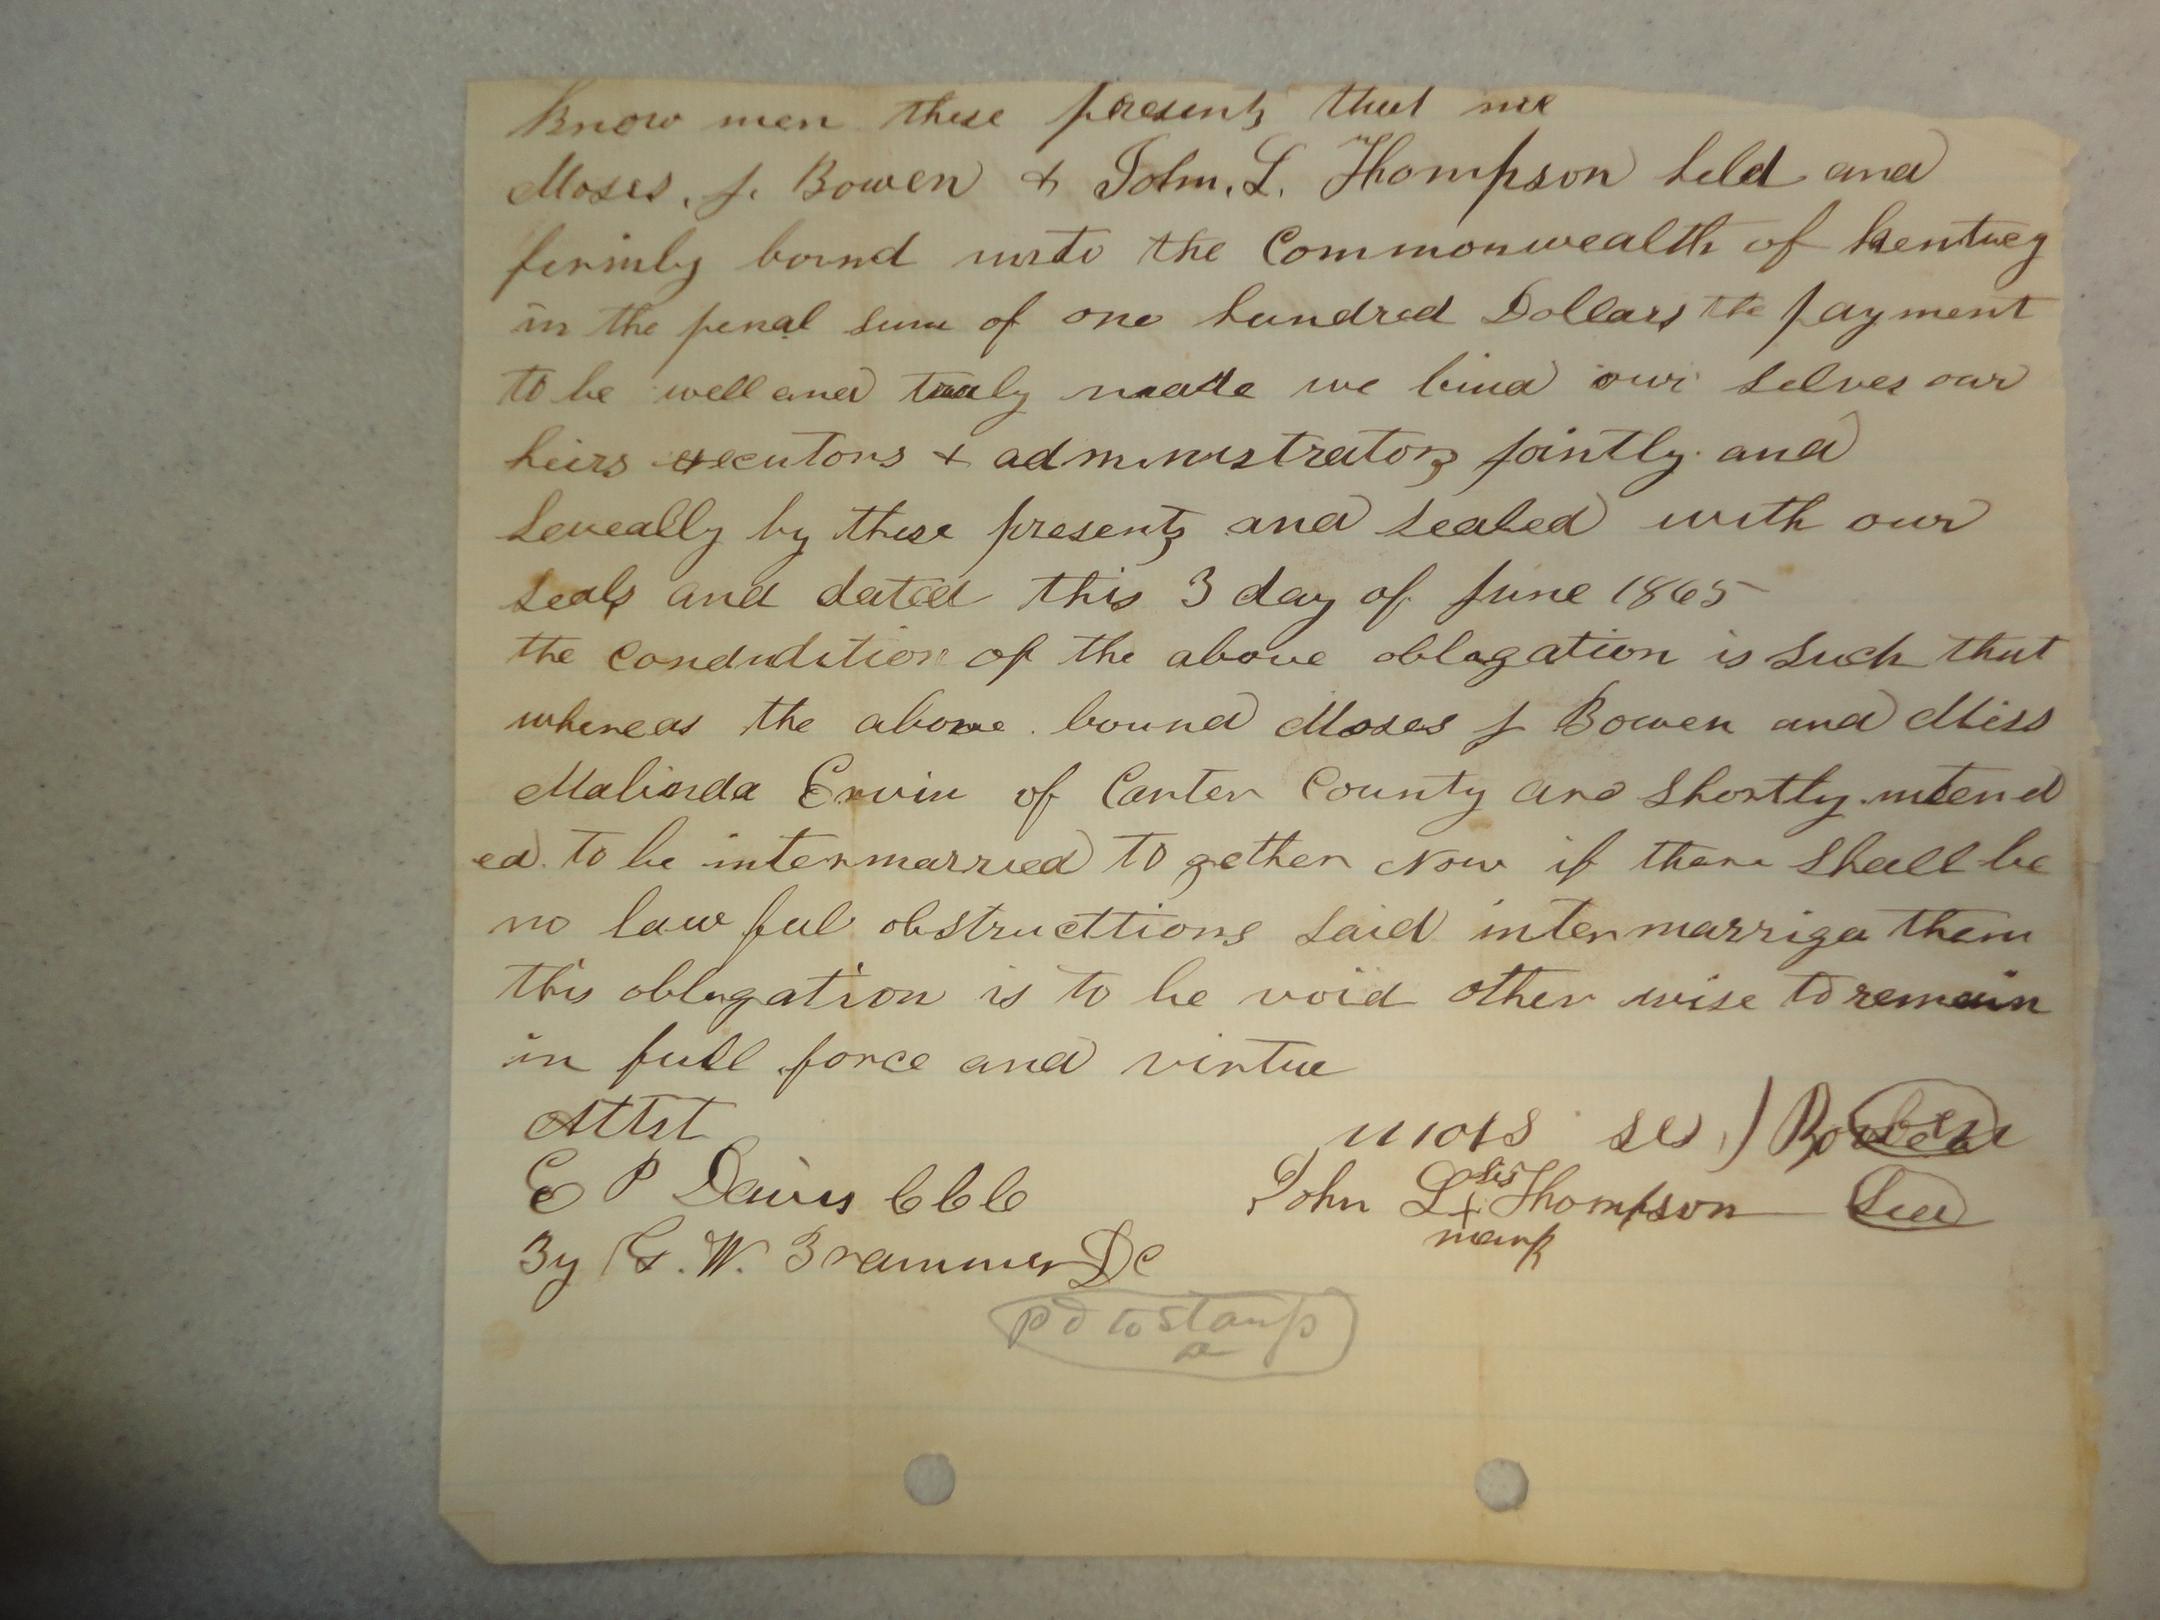 Know men these presents that we
Moses. J. Bowen & John. L. Thompson held and
firmly bound unto the Commonwealth of Kentucy
in the penal sum of one hundred Dollars the payment
to be well and truly made we bind our selves our
heirs executors & administrators jointly and
seveally by these presents and sealed with our
seals and dated this 3 day of June 1865
the condndition of the above oblagation is such that
whereas the above bound Moses J Bowen and Miss
Malinda Ervin of Carter County are shortly intend
ed to be intermarried to gether Now if there shall be
no law ful obstructtions said intermarriga them
this oblagation is to be void other wise to remain
in full force and virtue
Attst
Mois ses J Bowen
E P Davis CCC
John L his Thompson Seal
x
mark
By G. W. Brammer DC
pd to stamp